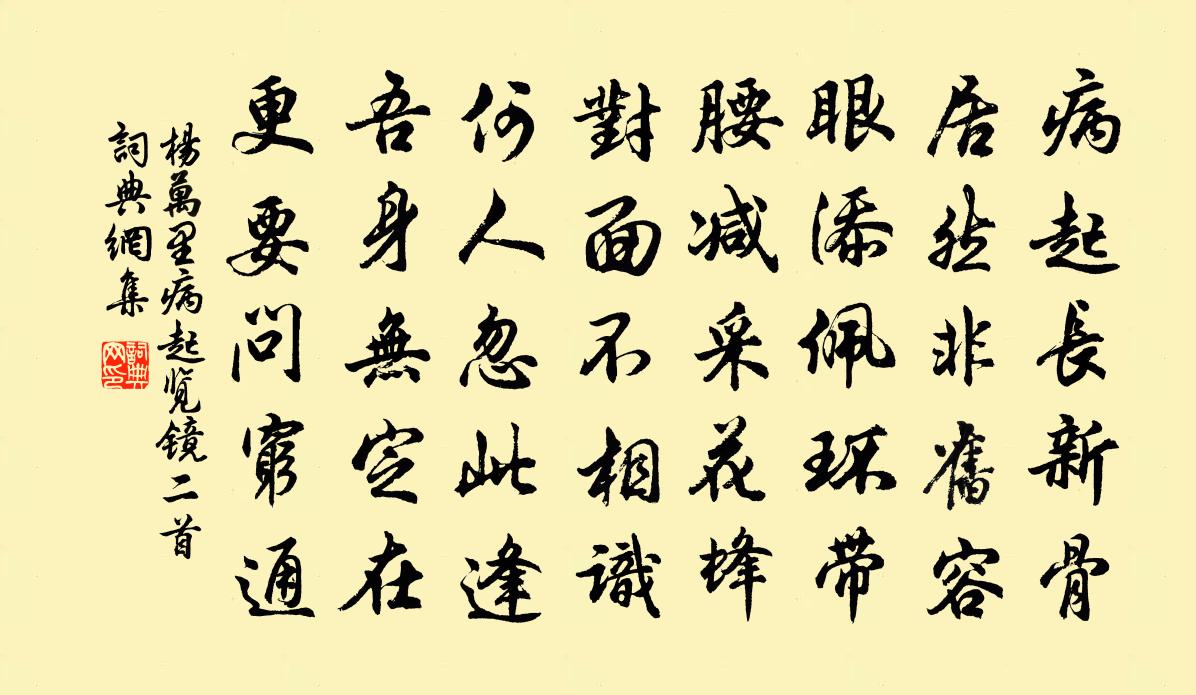 病起長新骨
居然非舊容
眼添佩环带
腰减采花蜂
對面不相識
何人忽此逢
吾身無定在
更要問窮通
楊萬里病起览镜二首
詞典網集
詞典网印